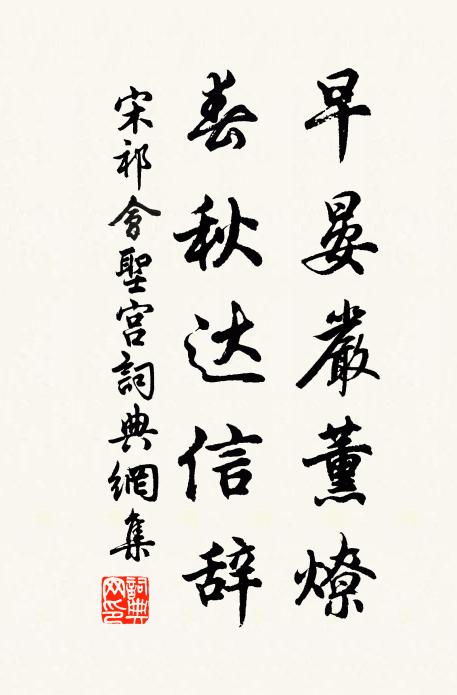 早晏嚴薰燎
春秋达信辞
宋祁會聖宫詞典網集
詞典網印